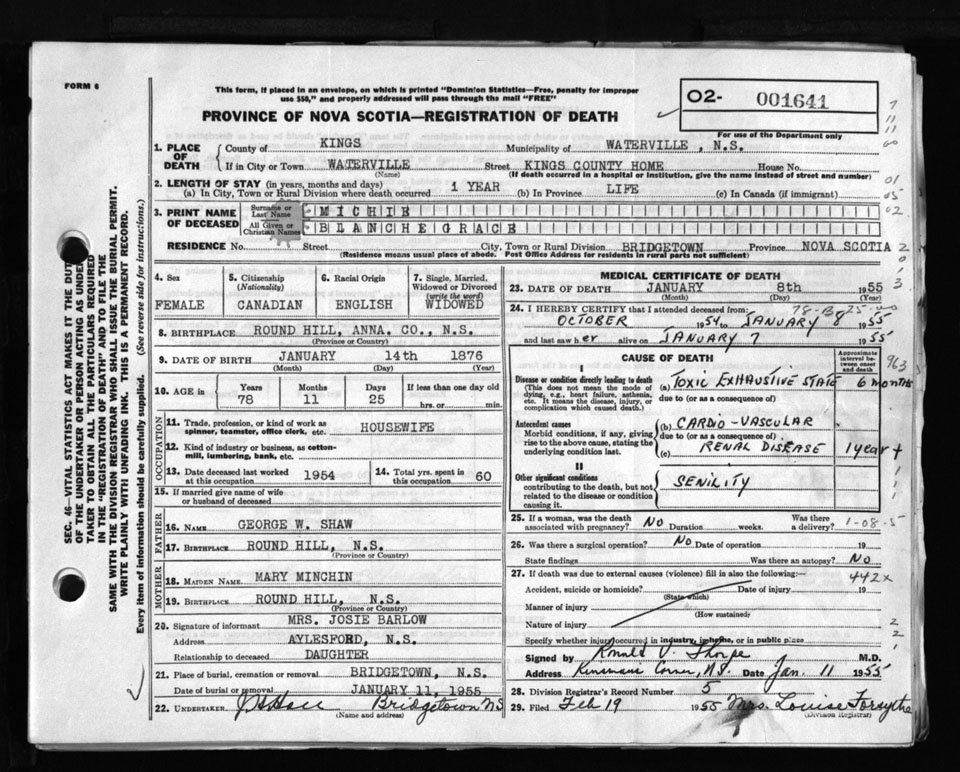 FORM 6
This form, if placed in an envelope, on which is printed "Dominion Statistics—Free, penalty for improper
use $50," and properly addressed will pass through the mail "FREE"
O2- 001641
For use of the Department only
PROVINCE OF NOVA SCOTIA—REGISTRATION OF DEATH
SEC. 46—VITAL STATISTICS ACT MAKES IT THE DUTY
OF THE UNDERTAKER OR PERSON ACTING AS UNDER
TAKER TO OBTAIN ALL THE PARTICULARS REQUIRED
IN THE "REGISTRATION OF DEATH" AND TO FILE THE
SAME WITH THE DIVISION REGISTRAR WHO SHALL ISSUE THE BURIAL PERMIT.
WRITE PLAINLY WITH UNFADING INK. THIS IS A PERMANENT RECORD.
Every item of information should be carefully supplied. (See reverse side for instructions.)
1. PLACE OF DEATH County of KINGS Municipality of WATERVILLE, N.S.
If in City or Town WATERVILLE Street KINGS COUNTY HOME House No.
(Name) (If death occurred in a hospital or institution, give the name instead of street and number)
2. LENGTH OF STAY (in years, months and days)
(a) In City, Town or Rural Division where death occurred 1 YEAR (b) In Province LIFE (c) In Canada (if immigrant)
3. PRINT NAME OF DECEASED Surname or Last Name MICHIE
All Given or Christian Names BLANCHE GRACE
RESIDENCE No. Street City, Town or Rural Division BRIDGETOWN Province NOVA SCOTIA
(Residence means usual place of abode. Post Office Address for residents in rural parts not sufficient)
4. Sex FEMALE
5. Citizenship (Nationality) CANADIAN
6. Racial Origin ENGLISH
7. Single, Married, Widowed or Divorced (write the word) WIDOWED
8. BIRTHPLACE ROUND HILL, ANNA. CO., N.S.
(Province or Country)
9. DATE OF BIRTH JANUARY 14th 1876
(Month) (Day) (Year)
10. AGE in Years 78 Months 11 Days 25 If less than one day old hrs. or min.
OCCUPATION
11. Trade, profession, or kind of work as spinner, teamster, office clerk, etc. HOUSEWIFE
12. Kind of industry or business, as cotton-mill, lumbering, bank, etc.
13. Date deceased last worked at this occupation 1954
14. Total yrs. spent in this occupation 60
15. If married give name of wife or husband of deceased
FATHER
16. NAME GEORGE W. SHAW
17. BIRTHPLACE ROUND HILL, N.S.
(Province or Country)
MOTHER
18. MAIDEN NAME MARY MINCHIN
19. BIRTHPLACE ROUND HILL, N.S.
(Province or Country)
20. Signature of informant MRS. JOSIE BARLOW
Address AYLESFORD, N.S.
Relationship to deceased DAUGHTER
21. Place of burial, cremation or removal BRIDGETOWN, N.S.
Date of burial or removal JANUARY 11, 1955
22. UNDERTAKER Bridgetown NS
(Name and address)
MEDICAL CERTIFICATE OF DEATH
23. DATE OF DEATH JANUARY 8th 1955
(Month) (Day) (Year)
24. I HEREBY CERTIFY that I attended deceased from:
OCTOBER 1954 to JANUARY 8 1955
and last saw her alive on JANUARY 7 1955
CAUSE OF DEATH
Approximate interval between onset and death
963
I
Disease or condition directly leading to death
(This does not mean the mode of dying, e.g., heart failure, asthenia, etc. It means the disease, injury, or complication which caused death.)
(a) TOXIC EXHAUSTIVE STATE 6 months
due to (or as a consequence of)
Antecedent causes
Morbid conditions, if any, giving rise to the above cause, stating the underlying condition last.
(b) CARDIO-VASCULAR
due to (or as a consequence of)
(c) RENAL DISEASE 1 year +
II
Other significant conditions
contributing to the death, but not related to the disease or condition causing it.
SENILITY
25. If a woman, was the death associated with pregnancy? NO Duration weeks. Was there a delivery?
1-08-5
26. Was there a surgical operation? NO Date of operation 19
State findings Was there an autopsy? NO
27. If death was due to external causes (violence) fill in also the following:—
442x
Accident, suicide or homicide? Date of injury 19
(State which)
Manner of injury
(How sustained)
Nature of injury
Specify whether injury occurred in industry, in home, or in public place
Signed by Ronald V. Thorpe M.D.
Address Date Jan. 11 1955
28. Division Registrar's Record Number 5
29. Filed Feb 19 1955 Mrs. Louise Forsythe
(Division Registrar)